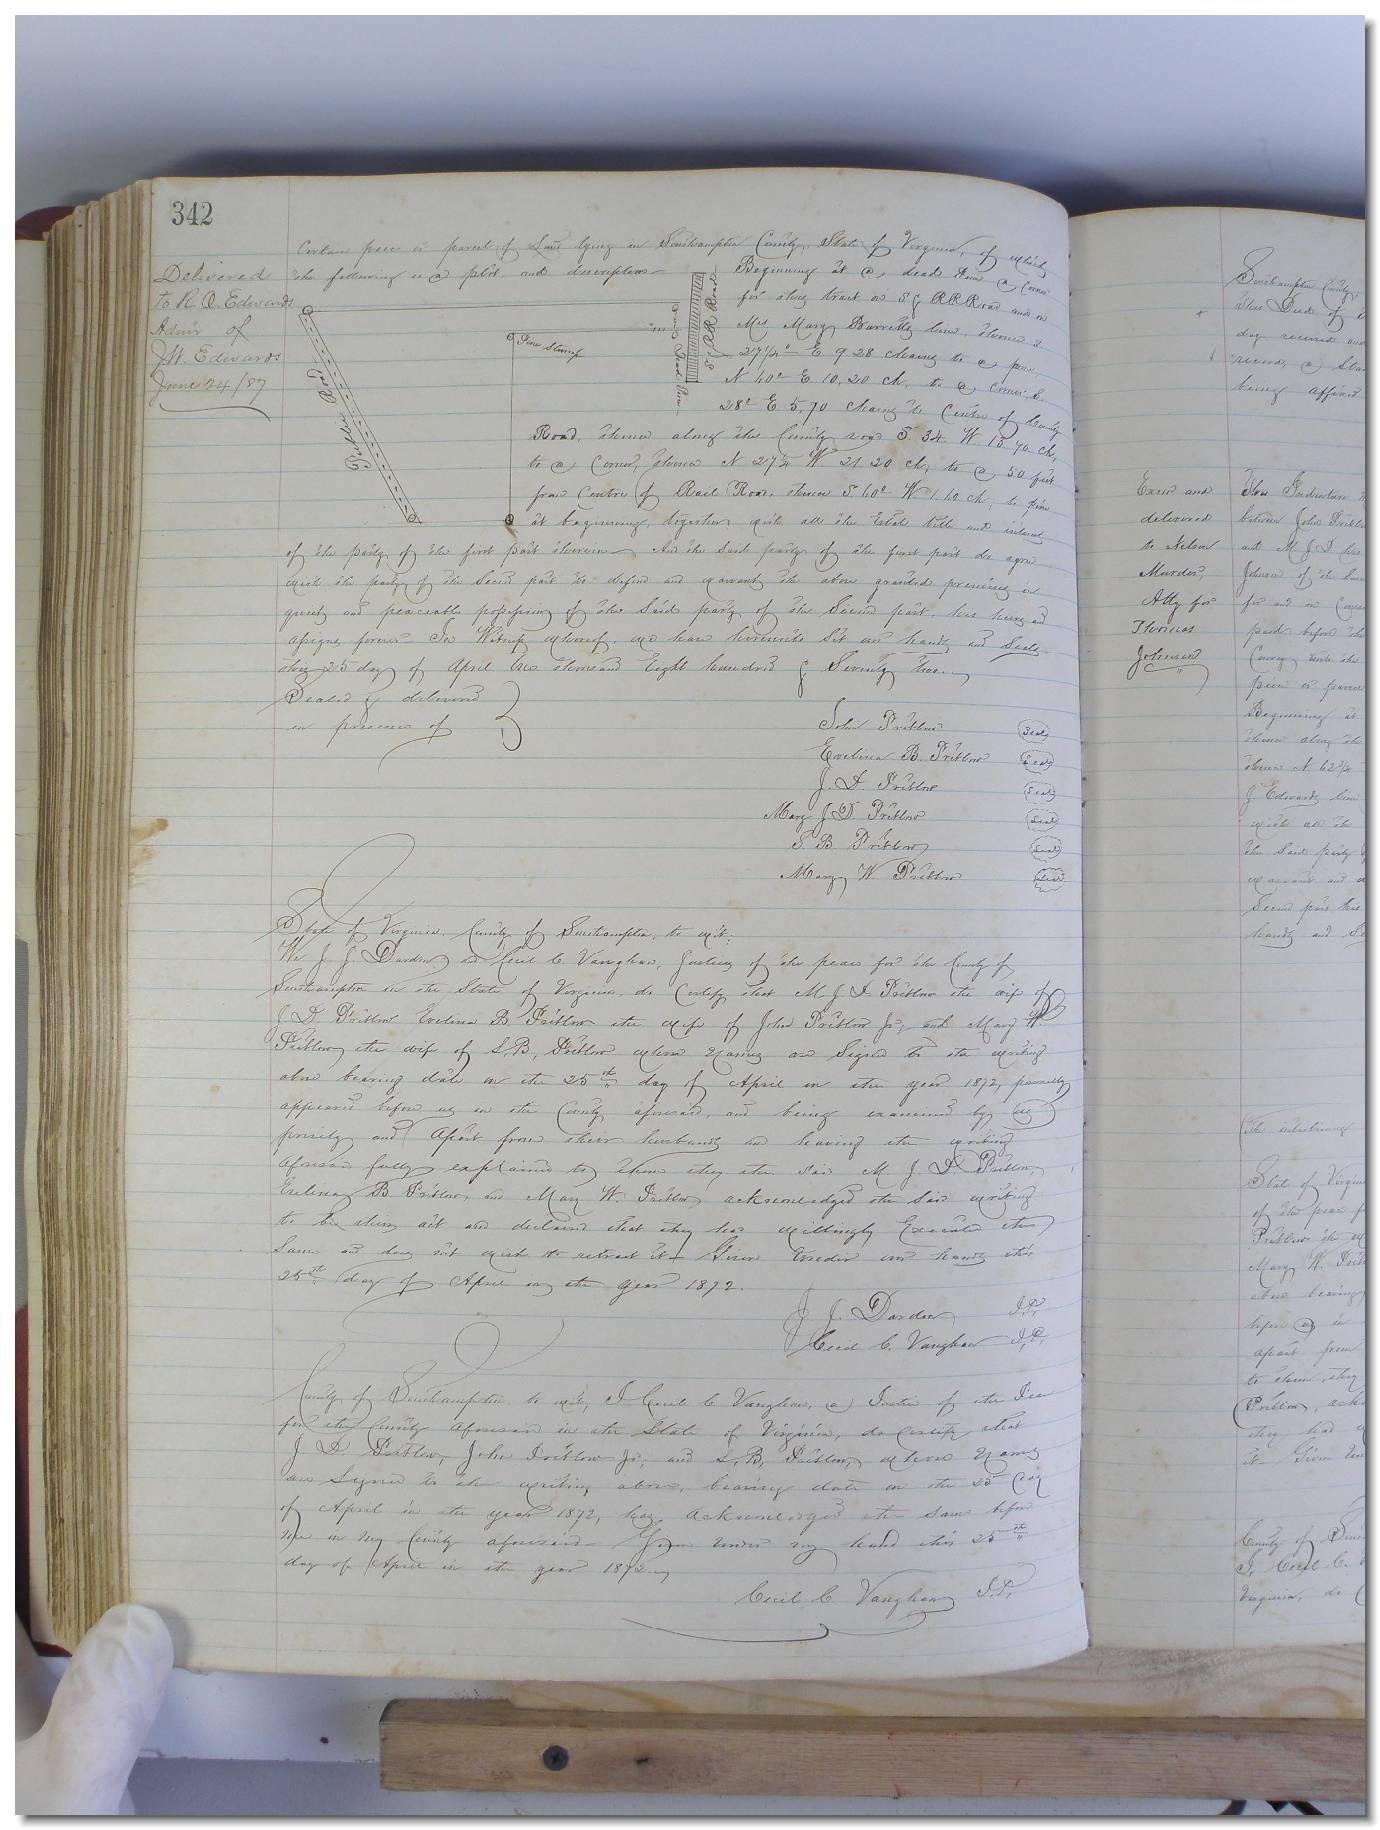 342
Certain piece or parcel of Land lying in Southampton County, State of Virginia, of which
the following is a plot and description
Delivered
to R. O. Edwards
Admr of
J.W. Edwards
June 24/87
Public Road
Pine Stump
S & R R Road
Beginning at a dead Pine a Corner
for this tract on S & R R Road and on
Mrs Mary Barretts line, thence S
27 1/4° E 9.28 chains to a pine,
N 60° E 10.20 ch, to a corner, S.
28° E 5.70 chains to Centre of County
Road, thence along the County road S. 34 W 15.70 ch,
to a corner, thence N 27 1/4 W 21.20 ch, to a 50 feet
from Centre of Rail Road, thence S 60° W 1.10 ch, to pine
at beginning, together with all the Estate title and interest
of the party of the first part therein And the said party of the first part do agree
with the party of the Second part to defend and warrant the above granted premises in
quiet and peaceable possession of the Said party of the Second part, his heirs and
assigns forever In Witness whereof, we have hereunto Set our hands and Seals
this 25 day of April One thousand Eight hundred & Seventy two.
Sealed & delivered
in presence of
John Pretlow Seal
Evelina B. Pretlow Seal
J. D. Pretlow Seal
Mary J D Pretlow Seal
S B Pretlow Seal
Mary W. Pretlow Seal
State of Virginia, County of Southampton, to wit:
We J J Darden and Cecil C. Vaughan, Justices of the peace for the County of
Southampton in the State of Virginia, do Certify that M J D Pretlow the wife of
J D Pretlow Evelina B Pretlow the wife of John Pretlow Jr, and Mary W.
Pretlow the wife of S. B. Pretlow whose names are Signed to the writing
above bearing date on the 25th day of April in the year 1872, personally
appeared before us in the County aforesaid, and being examined by us
privily and Apart from their husbands and having the writing
aforesaid fully explained to them they the said M. J. D. Pretlow,
Evelina B Pretlow and Mary W. Pretlow acknowledged the said writing
to be their act and declared that they had willingly Executed the
Same and does not wish to retract it Given Under our hands this
25th day of April in the year 1872.
J. J. Darden J.P.
Cecil C. Vaughan J.P.
County of Southampton to wit, I Cecil C Vaughan, a Justice of the Peace
for the County aforesaid in the State of Virginia, do Certify that
J D Pretlow, John Pretlow Jr, and S. B. Pretlow, whose Names
are Signed to the writing above, bearing date on the 25 day
of April in the year 1872, has acknowledged the same before
me in my County aforesaid Given under my hand this 25th
day of April in the year 1872
Cecil C Vaughan J.P.
Southampton County,
This Deed of
day received and
record, a Sta
being affixed
Exmd and
delivered
to Nelson
Murder,
Atty for
Thomas
Johnson
This Indenture
between John Pretlow
and M J D his
Johnson of the
for and in Con
paid before the
Convey unto the
piece or parcel
Beginning at
thence along the
thence N 62 3/4
J Edwards line
with all the
the Said party
warrant and
Second part, his
hands and Se
State of Virginia
of the peace f
Pretlow the w
Mary W. Pret
above bearing
before us in
apart from
to them they
Pretlow, ack
they had
it Given Un
County of Sou
I, Cecil C.
Virginia, do